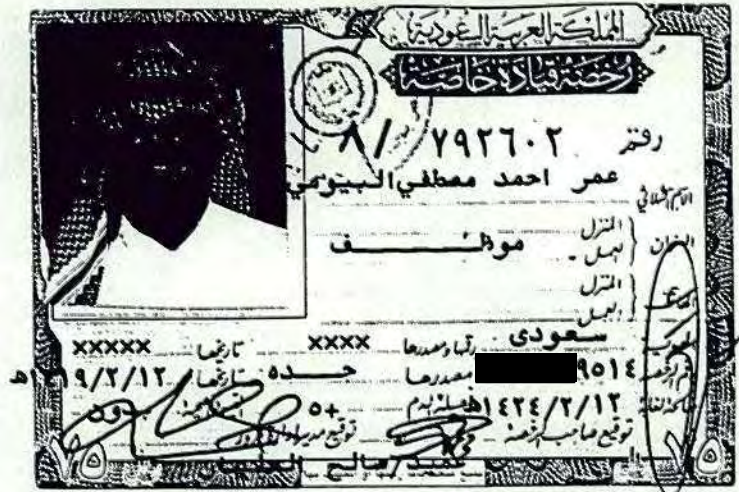 المملكة العربية السعودية
رخصة قيادة خاصة
رقم ٧٩٢٦٠٢ / ٨
عمر احمد مصطفي البيومي
المنزل
العمل - موظف
المنزل
العمل
سعودي رقمها ومصدرها XXXX تاريخها XXXXX
٩٥١٤ مصدرها جده تاريخها ١٤١٩/٢/١٢هـ
١٤٢٤/٢/١٢هـ فصيلة الدم +٥ بدون
توقيع صاحب الرخصة توقيع مدير إدارة المرور